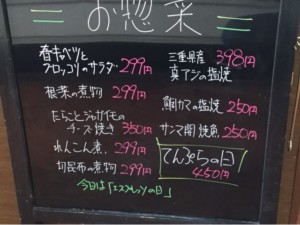 お惣菜
春キャベツと
ブロッコリのサラダ 299円
根菜の煮物 299円
たらことジャガイモの
チーズ焼き 350円
れんこん煮 299円
切昆布の煮物 299円
三重県産 398円
真アジの塩焼
鯛カマの塩焼 250円
サンマ開 焼魚 250円
てんぷらの日
450円
今日は「エスカレッツの日」